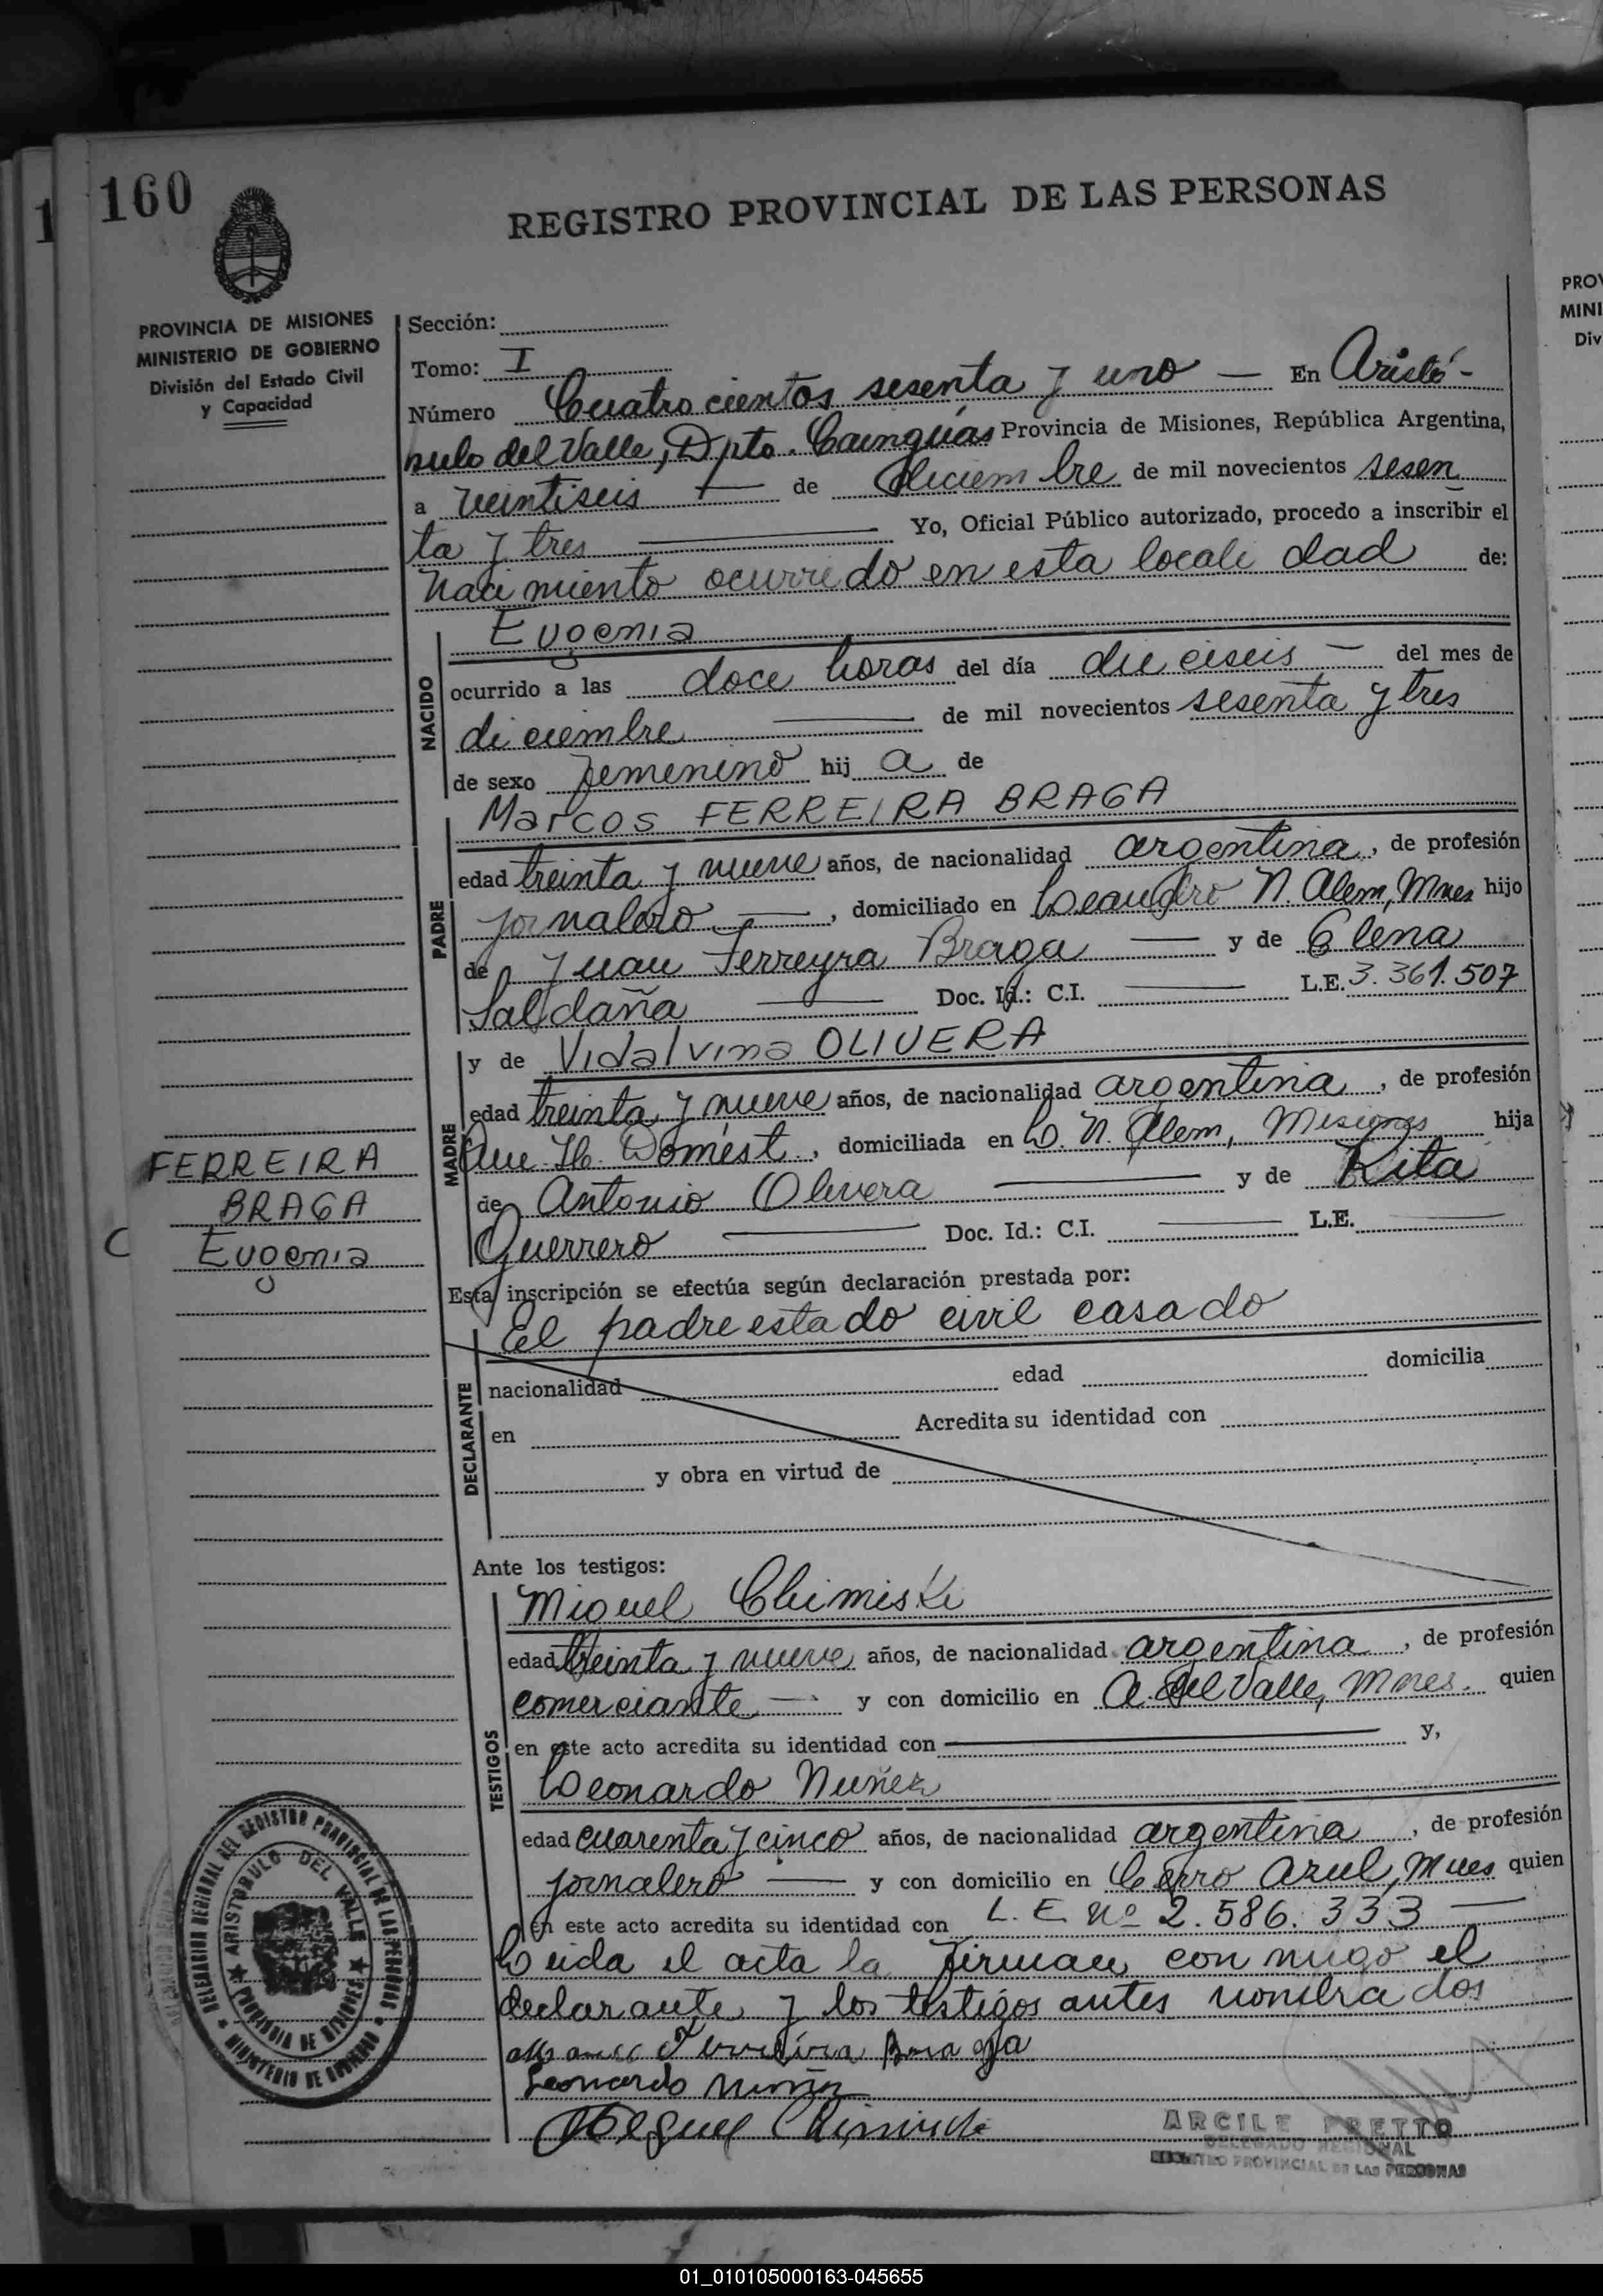 160
REGISTRO PROVINCIAL DE LAS PERSONAS
PROVINCIA DE MISIONES
MINISTERIO DE GOBIERNO
División del Estado Civil
y Capacidad
Sección:
Tomo: I
Número Cuatrocientos sesenta y uno — En Aristó-
bulo del Valle, Dpto. Cainguás Provincia de Misiones, República Argentina,
a veintiseis — de diciembre de mil novecientos sesen
ta y tres — Yo, Oficial Público autorizado, procedo a inscribir el
nacimiento ocurrido en esta localidad de:
NACIDO
Eugenia
ocurrido a las doce horas del día dieciseis — del mes de
diciembre — de mil novecientos sesenta y tres
de sexo femenino hij a de
PADRE
Marcos FERREIRA BRAGA
edad treinta y nueve años, de nacionalidad argentina, de profesión
jornalero —, domiciliado en Leandro N. Alem, Mnes hijo
de Juan Ferreyra Braga — y de Elena
Saldaña — Doc. Id.: C.I. — L.E. 3.361.507
MADRE
y de Vidalvina OLIVERA
edad treinta y nueve años, de nacionalidad argentina, de profesión
Que. H. Domést., domiciliada en L. N. Alem, Misiones hija
de Antonio Olivera — y de Rita
Guerrero — Doc. Id.: C.I. — L.E. —
FERREIRA
BRAGA
C Eugenia
Esta inscripción se efectúa según declaración prestada por:
DECLARANTE
El padre estado civil casado
nacionalidad edad domicilia
en Acredita su identidad con
y obra en virtud de
Ante los testigos:
TESTIGOS
Miguel Chimiski
edad treinta y nueve años, de nacionalidad argentina, de profesión
comerciante — y con domicilio en A. del Valle, Mnes. quien
en este acto acredita su identidad con — y,
Leonardo Nuñez
edad cuarenta y cinco años, de nacionalidad argentina, de profesión
jornalero — y con domicilio en Cerro Azul, Mnes quien
en este acto acredita su identidad con L. E. Nº 2.586.333 —
Leida el acta la firman conmigo el
declarante y los testigos antes nombrados
Ferreira Braga
Leonardo Nuñez
Miguel Chimiski
DELEGACION REGIONAL DEL REGISTRO PROVINCIAL DE LAS PERSONAS
MINISTERIO DE GOBIERNO
ARISTOBULO DEL VALLE
PROVINCIA DE MISIONES
ARCILE PRETTO
DELEGADO REGIONAL
REGISTRO PROVINCIAL DE LAS PERSONAS
PROV
MINI
Div
01_010105000163-045655